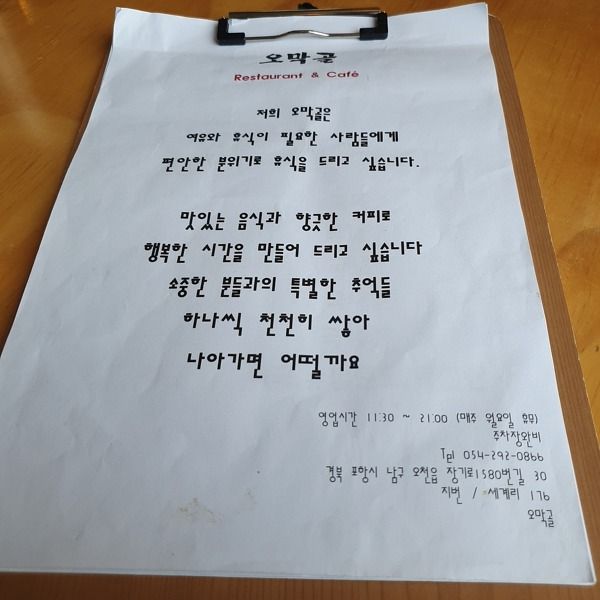 오막골
Restaurant & Café
저희 오막골은
여유와 휴식이 필요한 사람들에게
편안한 분위기로 휴식을 드리고 싶습니다.
맛있는 음식과 향긋한 커피로
행복한 시간을 만들어 드리고 싶습니다
소중한 분들과의 특별한 추억들
하나씩 천천히 쌓아
나아가면 어떨까요
영업시간 11:30 ~ 21:00 (매주 월요일 휴무)
주차장완비
Tel 054-292-0866
경북 포항시 남구 오천읍 장기로1580번길 30
지번 / 세계리 176
오막골